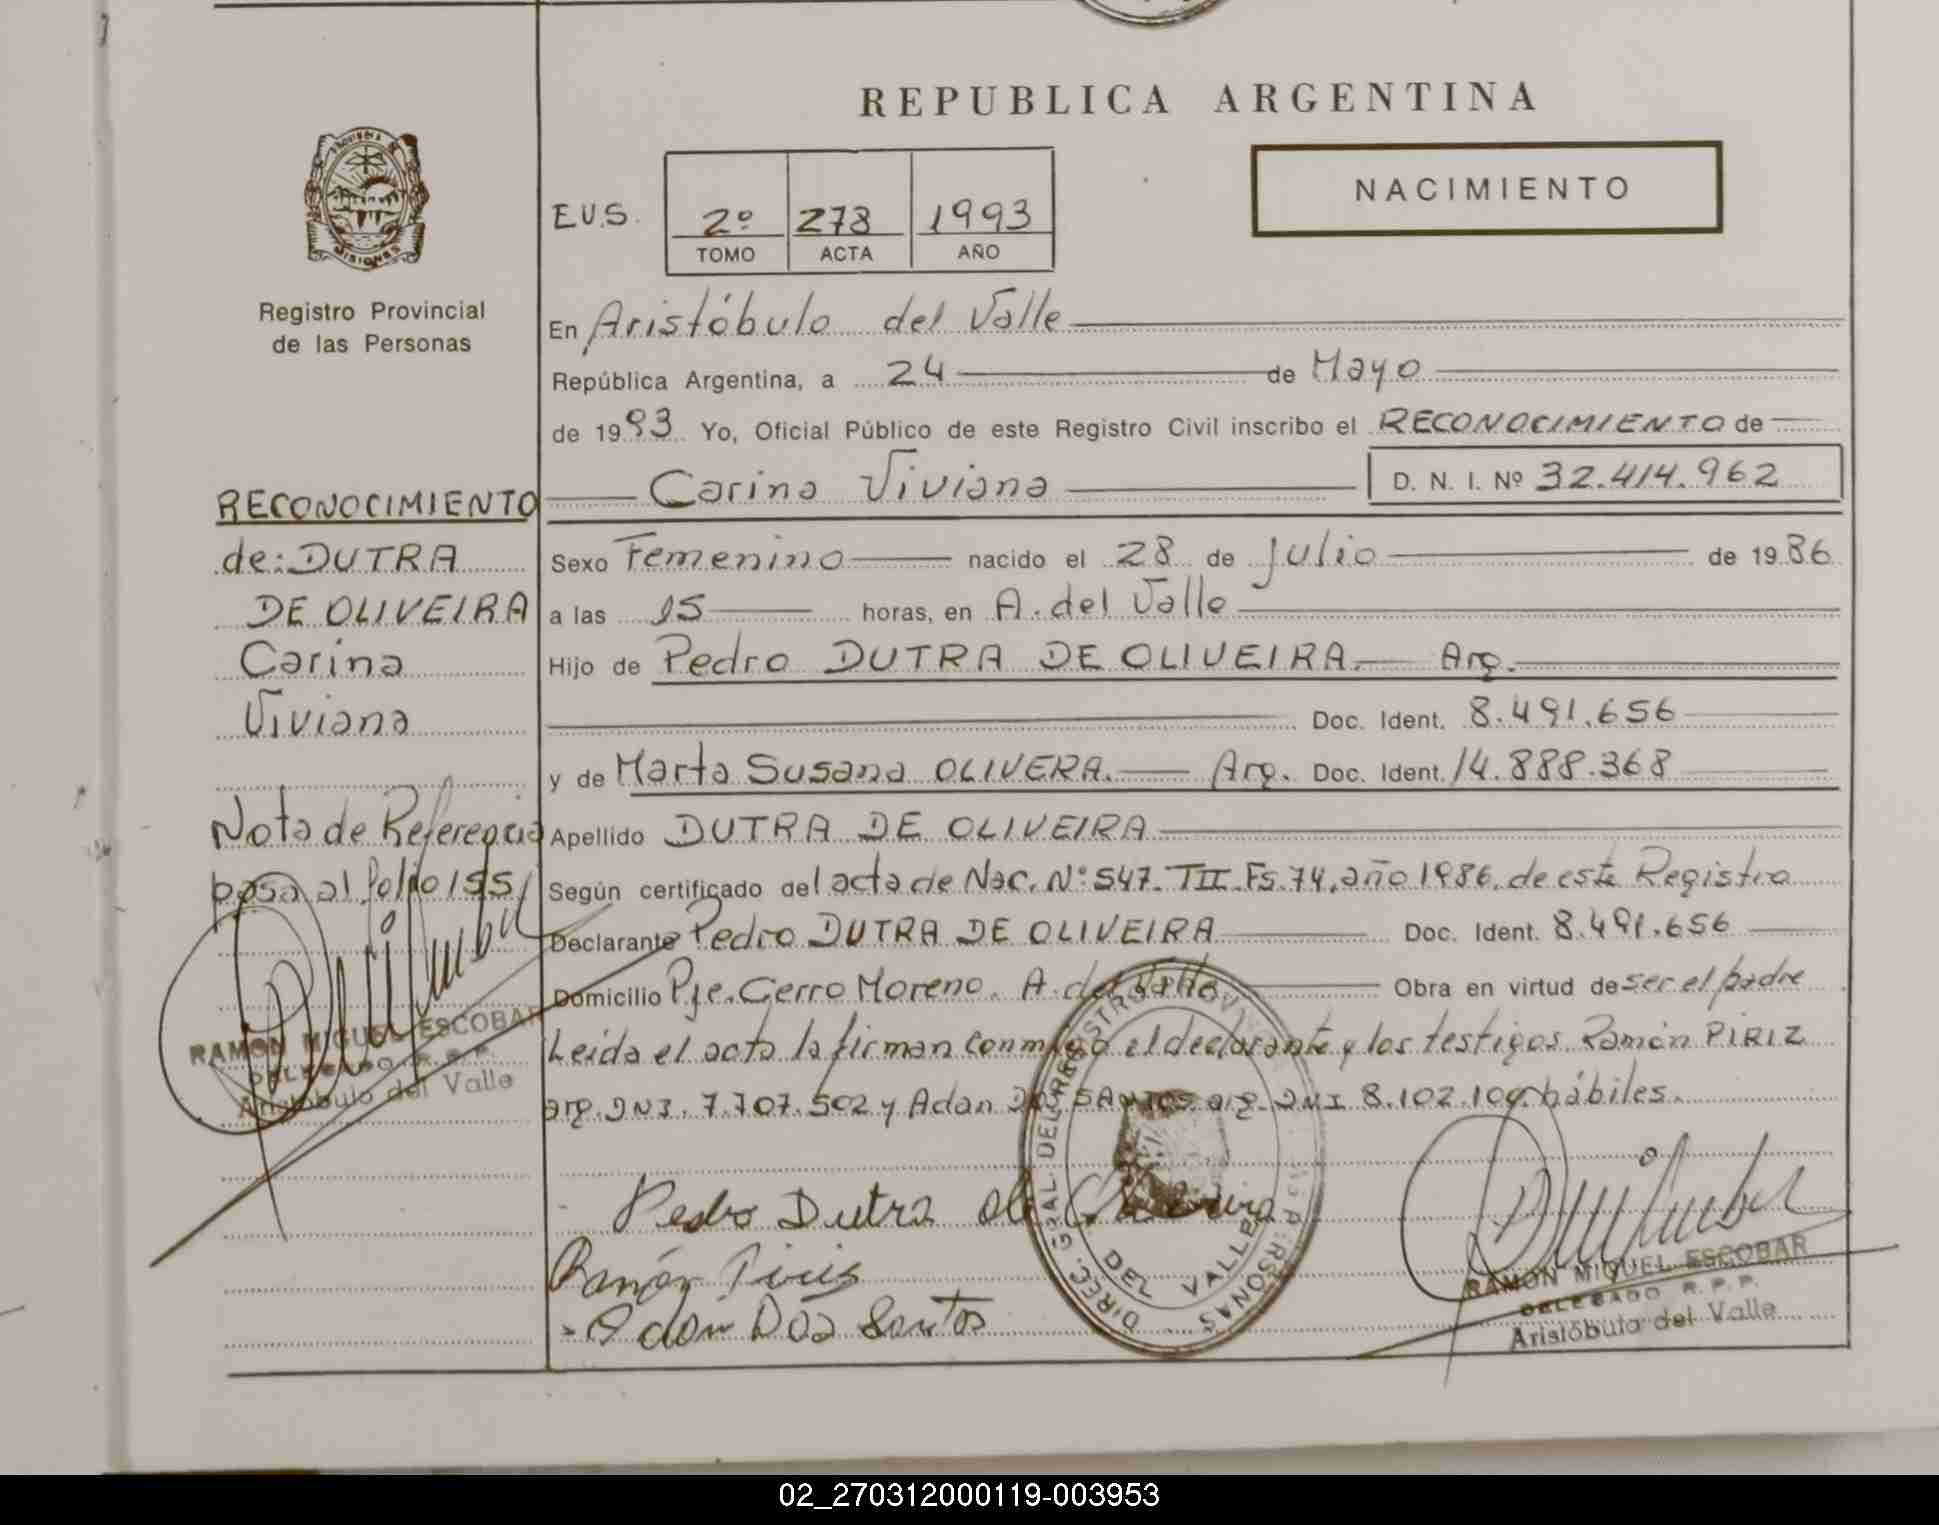 REPUBLICA ARGENTINA
NACIMIENTO
E.U.S. 2º 278 1993
TOMO ACTA AÑO
Registro Provincial
de las Personas
RECONOCIMIENTO
de: DUTRA
DE OLIVEIRA
Carina
Viviana
Nota de Referencia
pasa al folio 155
RAMON MIGUEL ESCOBAR
DELEGADO R.P.P.
Aristóbulo del Valle
En Aristóbulo del Valle
República Argentina, a 24 de Mayo
de 1993 Yo, Oficial Público de este Registro Civil inscribo el RECONOCIMIENTO de
Carina Viviana D. N. I. Nº 32.414.962
Sexo Femenino nacido el 28 de Julio de 1986
a las 15 horas, en A. del Valle
Hijo de Pedro DUTRA DE OLIVEIRA. Arg.
Doc. Ident. 8.491.656
y de Marta Susana OLIVERA. Arg. Doc. Ident. 14.888.368
Apellido DUTRA DE OLIVEIRA
Según certificado del acta de Nac. Nº 547. TII. Fs. 74, año 1986, de este Registro
Declarante Pedro DUTRA DE OLIVEIRA Doc. Ident. 8.491.656
Domicilio Pje. Cerro Moreno. A. del Valle Obra en virtud de ser el padre
Leida el acta la firman conmigo el declarante y los testigos Ramón PIRIZ
arg. DNI. 7.707.502 y Adan DOS SANTOS arg. DNI 8.102.109. hábiles.
Pedro Dutra de Oliveira
Ramón Piris
Adán Dos Santos
DIREC. GRAL. DEL REGISTRO PROV. DE LAS PERSONAS
DEL VALLE
RAMON MIGUEL ESCOBAR
DELEGADO R.P.P.
Aristóbulo del Valle
02_270312000119-003953